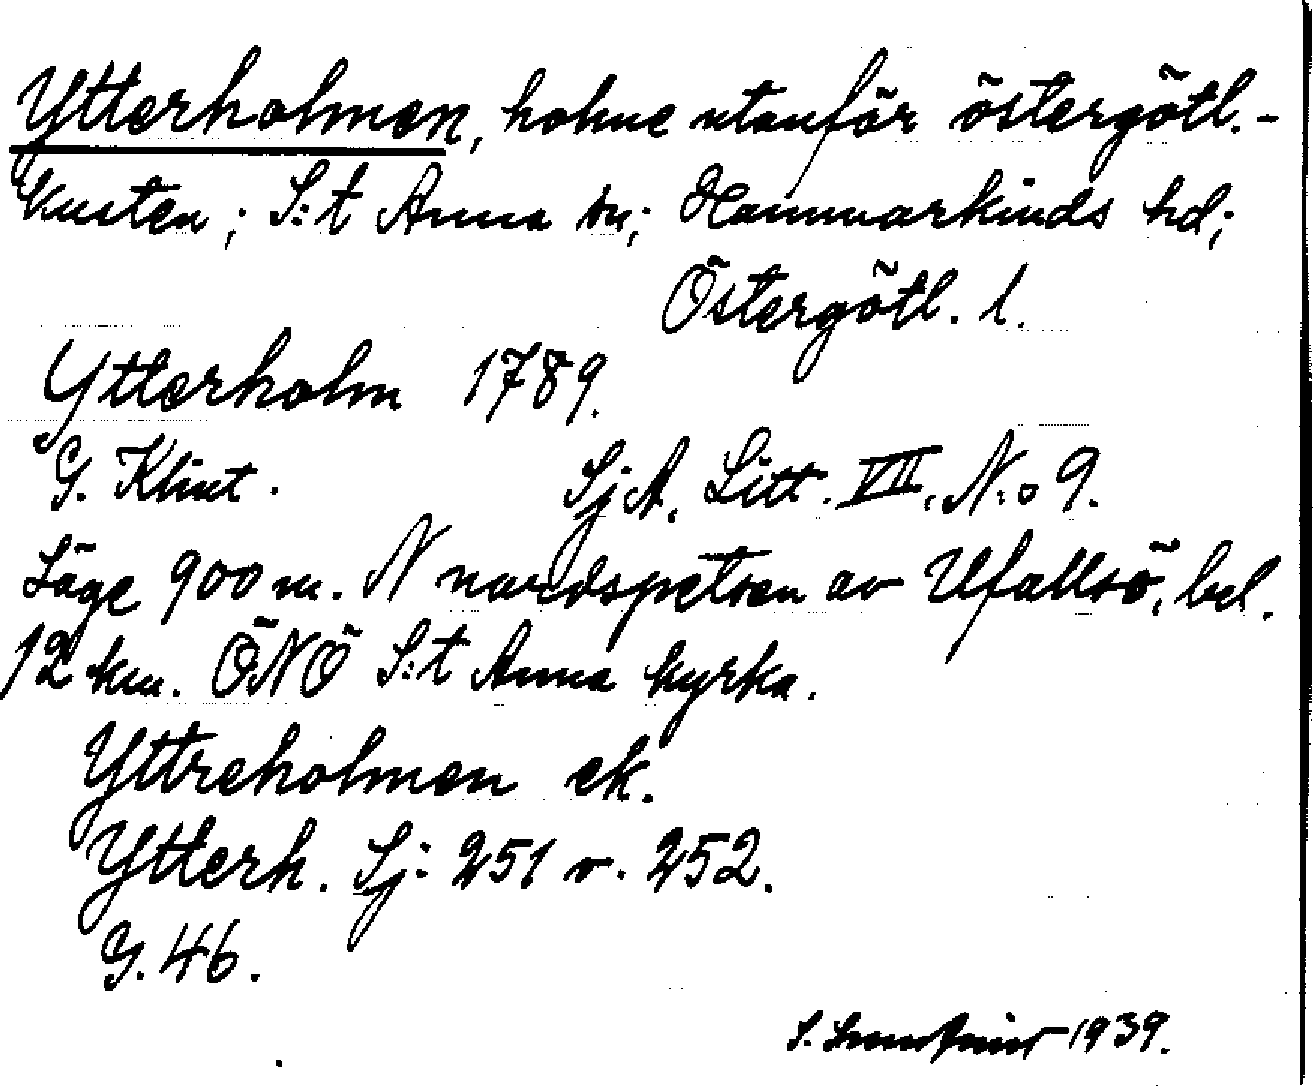 Ytterholmen, holme utanför östergötl.-
kusten; S:t Anna sn; Hammarkinds hd;
Östergötl. l.
Ytterholm 1789.
G. Klint. SjA. Litt. VII. N:o 9.
Läge 900 m. N nordspetsen av Ufallsö, bel.
12 km. ÖNÖ S:t Anna kyrka.
Yttreholmen ek.
Ytterh. Sj: 251 v. 252.
G. 46.
S. 1939.